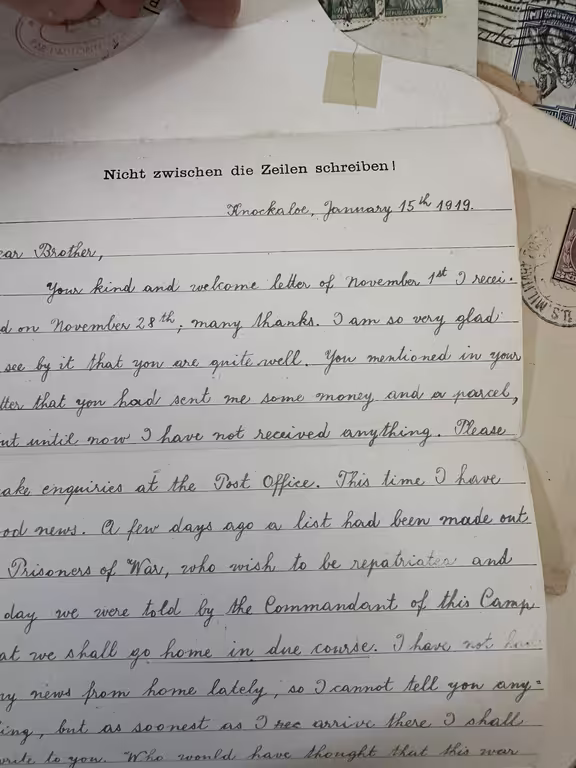 Nicht zwischen die Zeilen schreiben!
Knockaloe, January 15th 1919.
ear Brother,
Your kind and welcome letter of November 1st I recei-
d on November 28th, many thanks. I am so very glad
see by it that you are quite well. You mentioned in your
tter that you had sent me some money and a parcel,
ut until now I have not received anything. Please
ake enquiries at the Post Office. This time I have
ood news. A few days ago a list had been made out
Prisoners of War, who wish to be repatriated and
day we were told by the Commandant of this Camp
at we shall go home in due course. I have not had
ny news from home lately, so I cannot tell you any=
ing, but as soonest as I rec arrive there I shall
write to you. Who would have thought that this war
U.S. MILITARY